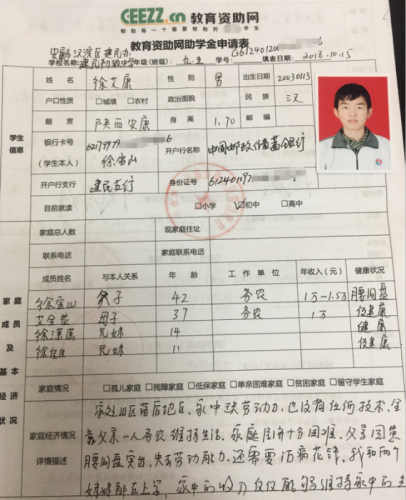 CEEZZ.cn 教育资助网
帮助每一个需要帮助的 学生
教育资助网助学金申请表
汉滨区建民办
学校名称: 建民初级中学 年级(班级): 九.五 学号: G612401200 填表日期: 2018.10.15
姓名 徐艾康 性别 男 出生日期 20030113
户口性质 □城镇 □农村 政治面貌 民族 汉
籍贯 陕西安康 身高 1.70 邮编
学生信息
银行卡号 (学生本人) 62179979 6 徐宝山 开户行名称 中国邮政储蓄银行
开户行支行 建民支行 身份证号 6124010197
目前就读 □小学 ☑初中 □高中
家庭总人数 现家庭住址
联系电话 家庭联系电话
成员姓名 与本人关系 年龄 工作单位 年收入(元) 健康状况
徐宝山 父子 42 务农 1万-1.5万 腰间盘
艾金花 母子 37 务农 1万 健康
徐 兄妹 14 健康
徐 兄妹 11 健康
家庭成员及基本经济状况
家庭情况 □孤儿家庭 □残障家庭 □低保家庭 □单亲困难家庭 □贫困家庭 □留守学生家庭
家庭经济情况详细描述
家处山区落后地区,家中缺劳动力,也没有任何技术,全
靠父亲一人务农维持生活,家庭十分困难,父亲因患
腰间盘突出,失去劳动能力,还需要治病花钱,我和两个
妹妹都在上学,家中的收入仅仅能够维持家中的生